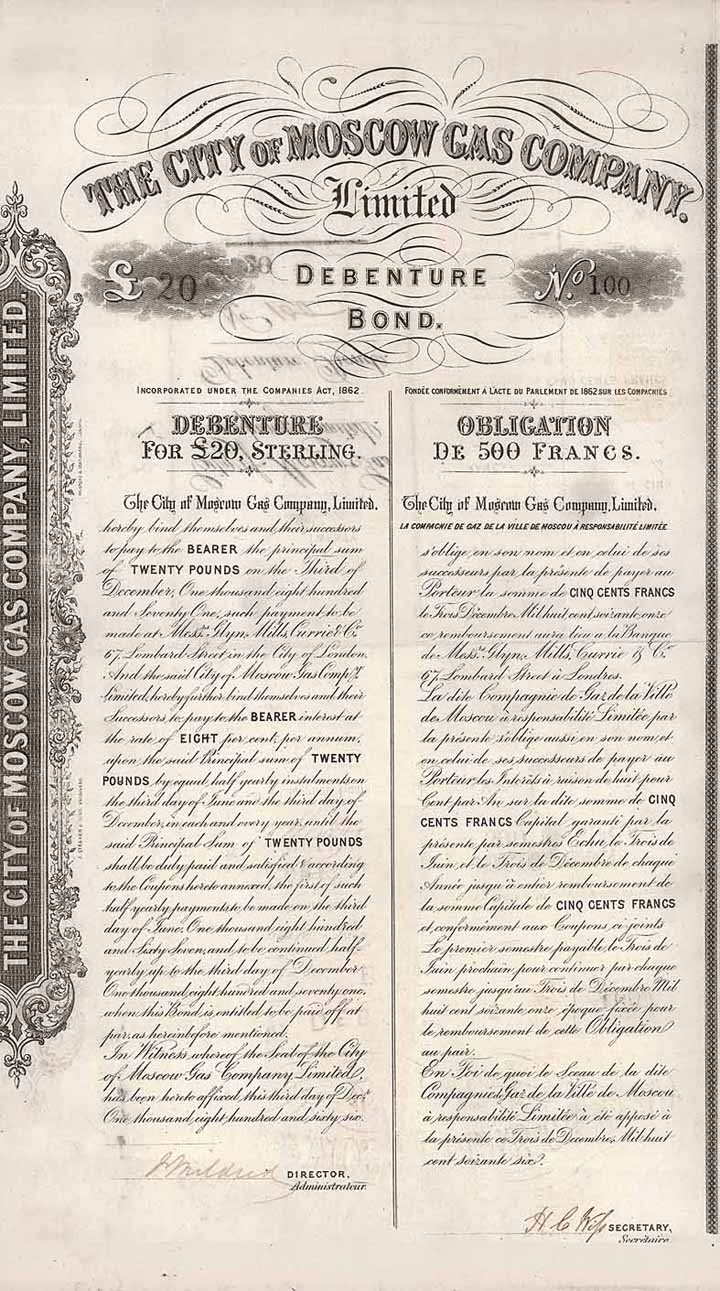 THE CITY OF MOSCOW GAS COMPANY.
Limited
£ 20
DEBENTURE
No. 100
BOND.
THE CITY OF MOSCOW GAS COMPANY, LIMITED.
INCORPORATED UNDER THE COMPANIES ACT, 1862.
DEBENTURE
FOR £20, STERLING.
The City of Moscow Gas Company, Limited,
hereby bind themselves and their successors
to pay to the BEARER the principal sum
of TWENTY POUNDS on the Third of
December, One thousand eight hundred
and Seventy One, such payment to be
made at Messrs. Glyn, Mills, Currie & Co.
67, Lombard Street, in the City of London.
And the said City of Moscow Gas Compy.
Limited, hereby further bind themselves and their
Successors, to pay to the BEARER interest at
the rate of EIGHT per cent, per annum,
upon the said Principal sum of TWENTY
POUNDS by equal, half yearly instalments on
the third day of June and the third day of
December, in each and every year, until the
said Principal Sum of TWENTY POUNDS
shall be duly paid and satisfied & according
to the Coupons hereto annexed, the first of such
half yearly payments to be made on the third
day of June, One thousand eight hundred
and Sixty Seven, and to be continued half
yearly up to the third day of December
One thousand, eight hundred and seventy one,
when this Bond, is entitled to be paid off at
par, as hereinbefore mentioned.
In Witness whereof the Seal of the City
of Moscow Gas Company Limited,
has been hereto affixed, this third day of Decr.
One thousand, eight hundred and sixty six.
J Mildred DIRECTOR,
Administrateur.
FONDÉE CONFORMÉMENT A L'ACTE DU PARLEMENT DE 1862 SUR LES COMPAGNIES
OBLIGATION
DE 500 FRANCS.
The City of Moscow Gas Company, Limited.
LA COMPAGNIE DE GAZ DE LA VILLE DE MOSCOU À RESPONSABILITÉ LIMITÉE
s'oblige, en son nom et en celui de ses
successeurs par la présente de payer au
Porteur la somme de CINQ CENTS FRANCS
le Trois Décembre Mil huit cent soixante onze
ce remboursement aura lieu a la Banque
de Messrs. Glyn, Mills, Currie & Co.
67, Lombard Street à Londres.
La dite Compagnie de Gaz de la Ville
de Moscou à responsabilité Limitée par
la présente s'oblige aussi en son nom et
en celui de ses successeurs de payer au
Porteur les Intérêts à raison de huit pour
Cent par An sur la dite somme de CINQ
CENTS FRANCS Capital garanti par la
présente par semestres Echu le Trois de
Juin, et le Trois de Décembre de chaque
Année jusqu'à entier remboursement de
la somme Capitale de CINQ CENTS FRANCS
et conformément aux Coupons ci joints
Le premier semestre payable le Trois de
Juin prochain pour continuer par chaque
semestre jusqu'au Trois de Décembre Mil
huit cent soizante onze époque fixée pour
le remboursement de cette Obligation
au pair.
En Foi de quoi le Sceau de la dite
Compagnie de Gaz de la Ville de Moscou
à responsabilité Limitée à été apposé à
la présente ce Trois de Décembre, Mil huit
cent soizante six.
SECRETARY,
Secrétaire